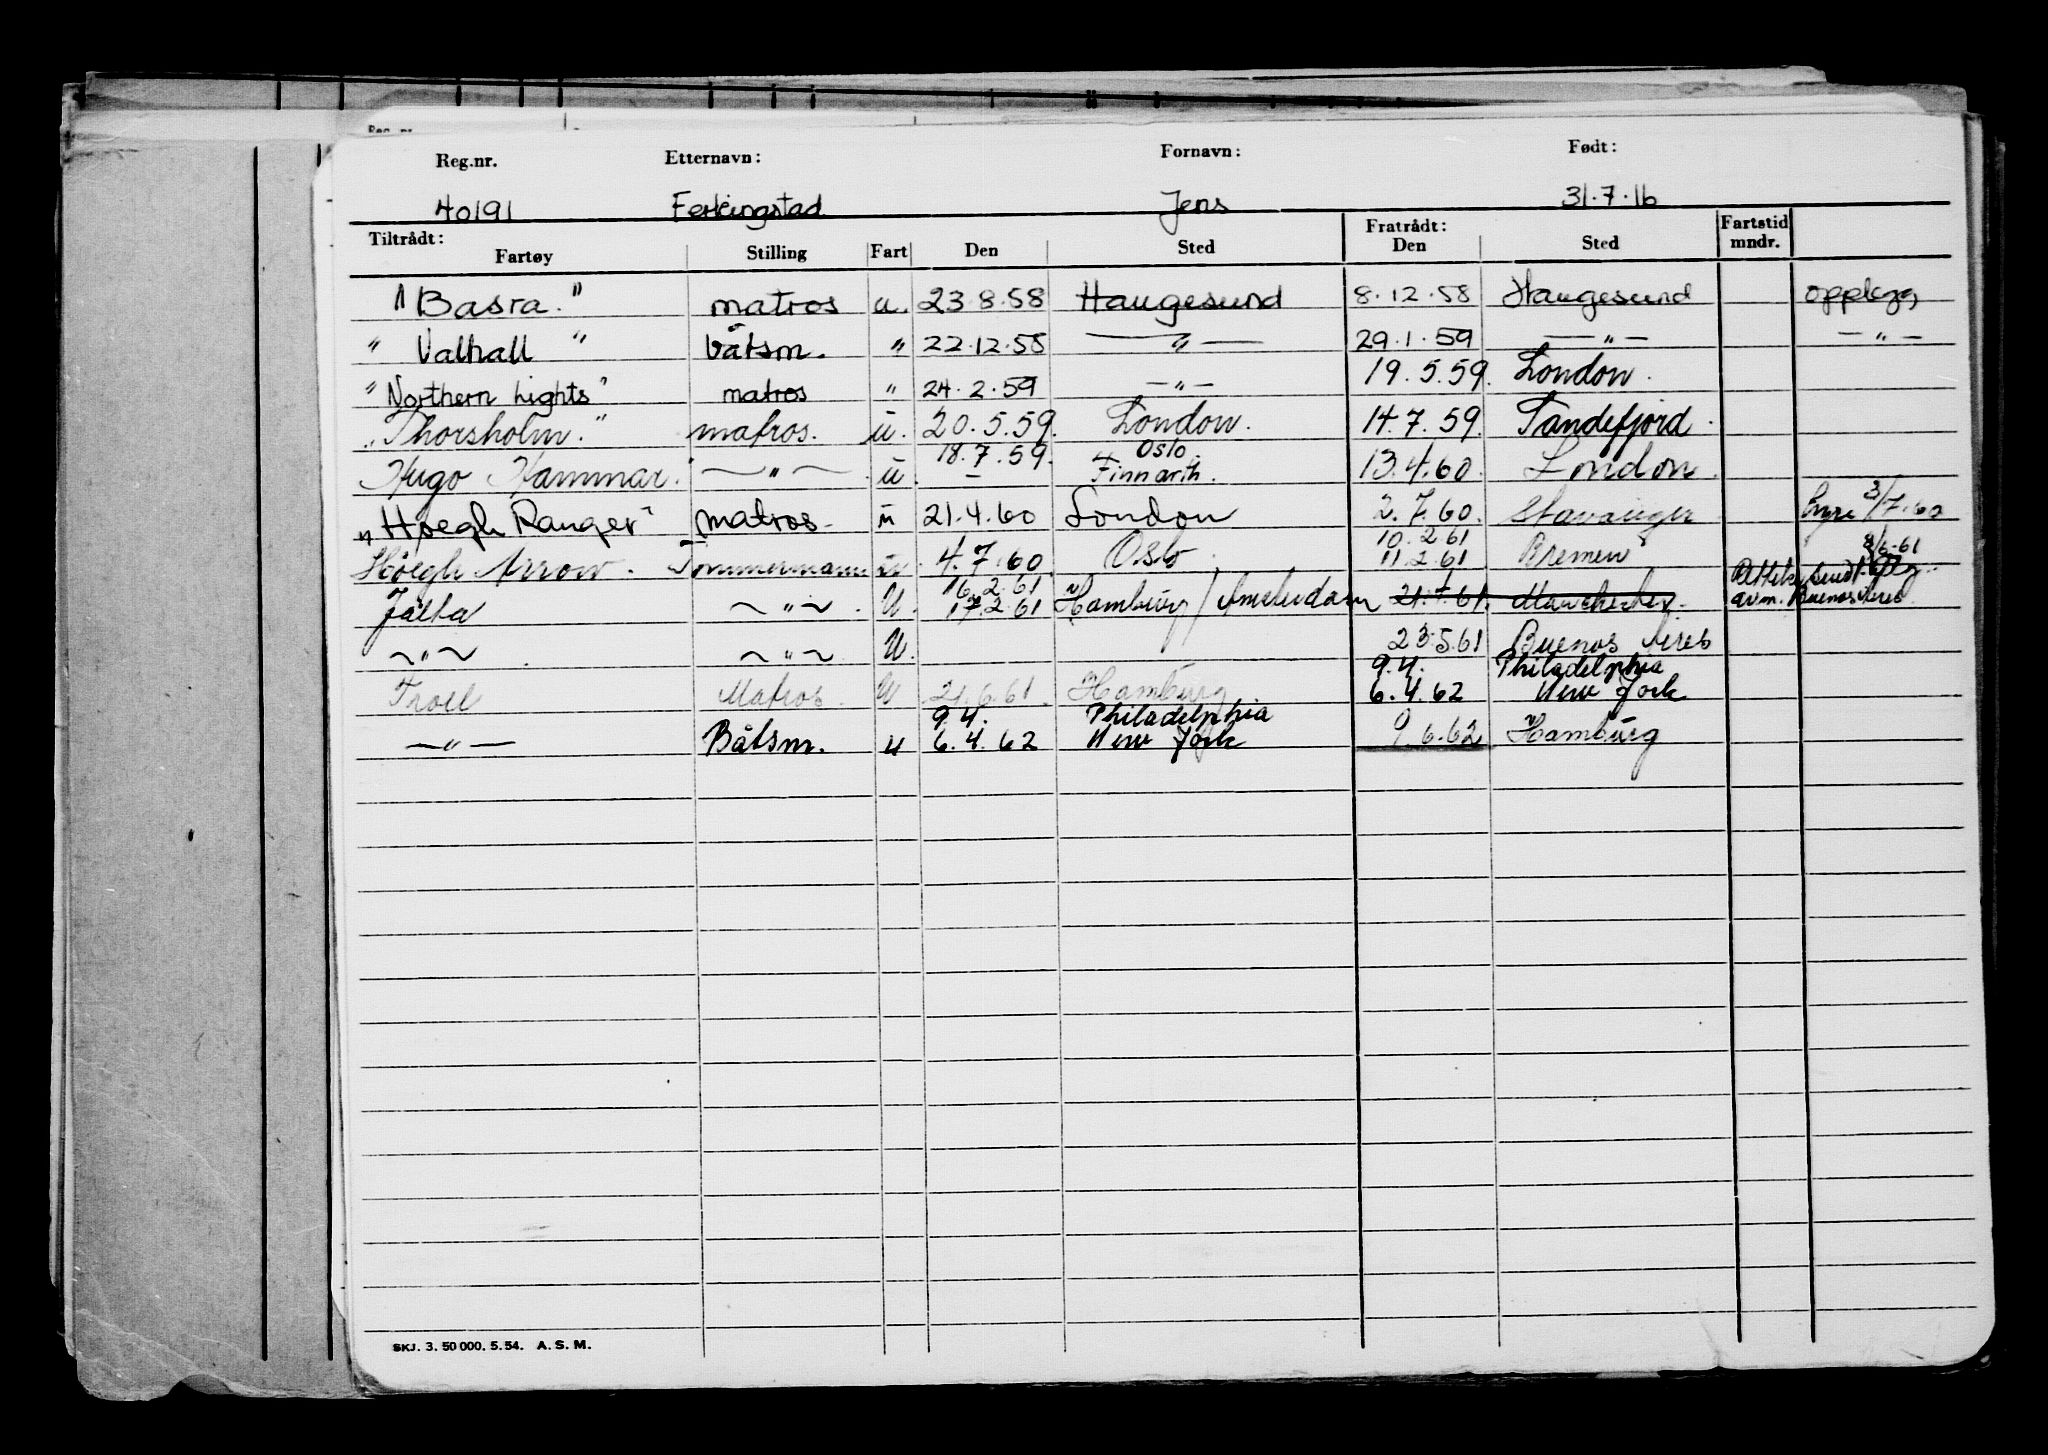 Reg.nr. Etternavn: Fornavn: Født:
40191 Ferkingstad Jens 31.7.16
Tiltrådt: Fratrådt: Fartstid
Fartøy Stilling Fart Den Sted Den Sted mndr.
"Basra." matros u. 23.8.58 Haugesund 8.12.58 Haugesund opplegg
" Valhall " båtsm. " 22.12.58 — " — 29.1.59 — " — — " —
"Northern Lights" matros " 24.2.59 — " — 19.5.59. London.
"Thorsholm." matros. u. 20.5.59. London. 14.7.59. Sandefjord.
Hugo Hammar. — " — u. 18.7.59. Oslo. 13.4.60. London.
— Finnarth.
"Høegh Ranger" matros. u 21.4.60 London 2.7.60. Stavanger hyre 3/7.60
10.2.61 8/6-61
Høegh Arrow. Tømmermann u. 4.7.60 Oslo. 11.2.61 Bremen
16.2.61
Jalta — " — . U. 17.2.61 Hamburg / Amsterdam 21.7.61. Manchester.
avm. Buenos Aires
— " — . — " — U. 23.5.61 Buenos Aires
9.4. Philadelphia
Troll Matros. U 21.6.61. Hamburg 6.4.62 New York
9.4. Philadelphia
— " — Båtsm. u 6.4.62 New York 9.6.62 Hamburg
SKJ. 3. 50 000. 5. 54. A. S. M.